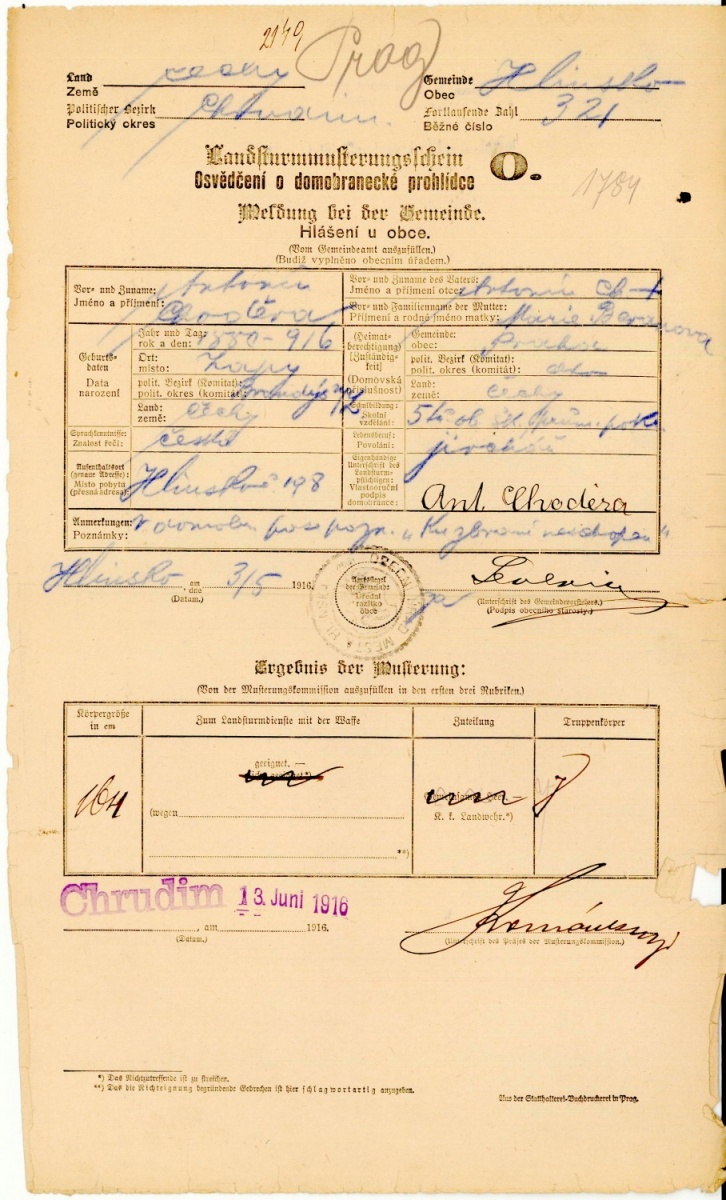 2149 Prag
Land
Země
Čechy
Gemeinde
Obec
Hlinsko
Politischer Bezirk
Politický okres
Chrudim.
Fortlaufende Zahl
Běžné číslo
321
Landsturmmusterungsschein
Osvědčení o domobranecké prohlídce
O.
1784
Meldung bei der Gemeinde.
Hlášení u obce.
(Vom Gemeindeamt auszufüllen.)
(Budiž vyplněno obecním úřadem.)
Vor- und Zuname:
Jméno a příjmení:
Antonín
Choděra
Vor- und Zuname des Vaters:
Jméno a příjmení otce:
Antonín Ch
Vor- und Familienname der Mutter:
Příjmení a rodné jméno matky:
Marie Beranova
Geburts-
daten
Data
narození
Jahr und Tag:
rok a den:
1880-9/6
Ort:
místo:
Zapy
polit. Bezirk (Komitat):
polit. okres (komitát):
Brandýs n/L
Land:
země:
Čechy
(Heimat-
berechtigung)
(Zuständig-
keit)
(Domovská
příslušnost)
Gemeinde:
obec:
Praha
polit. Bezirk (Komitat):
polit. okres (komitát):
Land:
země:
Čechy
Schulbildung:
Školní
vzdělání:
5 tř. ob. šk.
Sprachkenntnisse:
Znalost řečí:
česká
Lebensberuf:
Povolání:
jirchář
Aufenthaltsort
(genaue Adresse):
Místo pobytu
(přesná adresa):
Hlinsko č 198
Eigenhändige
Unterschrift des
Landsturm-
pflichtigen:
Vlastnoruční
podpis
domobrance:
Ant. Choděra
Anmerkungen:
Poznámky:
V domobr. pase pozn. „Ku zbrani neschopen"
Hlinsko am
dne 3/5 1916.
(Datum.)
Amtssiegel
der Gemeinde
Úřední
razítko
obce
(Unterschrift des Gemeindevorstehers.)
(Podpis obecního starosty.)
Ergebnis der Musterung:
(Von der Musterungskommission auszufüllen in den ersten drei Rubriken.)
Körpergröße
in cm
Zum Landsturmdienste mit der Waffe
Zuteilung
Truppenkörper
164
geeignet. —
(wegen
**)
K. k. Landwehr.*)
Chrudim 13. Juni 1916
, am 1916.
(Datum.)
(Unterschrift des Präses der Musterungskommission.)
*) Das Nichtzutreffende ist zu streichen.
**) Das die Nichteignung begründende Gebrechen ist hier schlagwortartig anzugeben.
Aus der Statthalterei-Buchdruckerei in Prag.